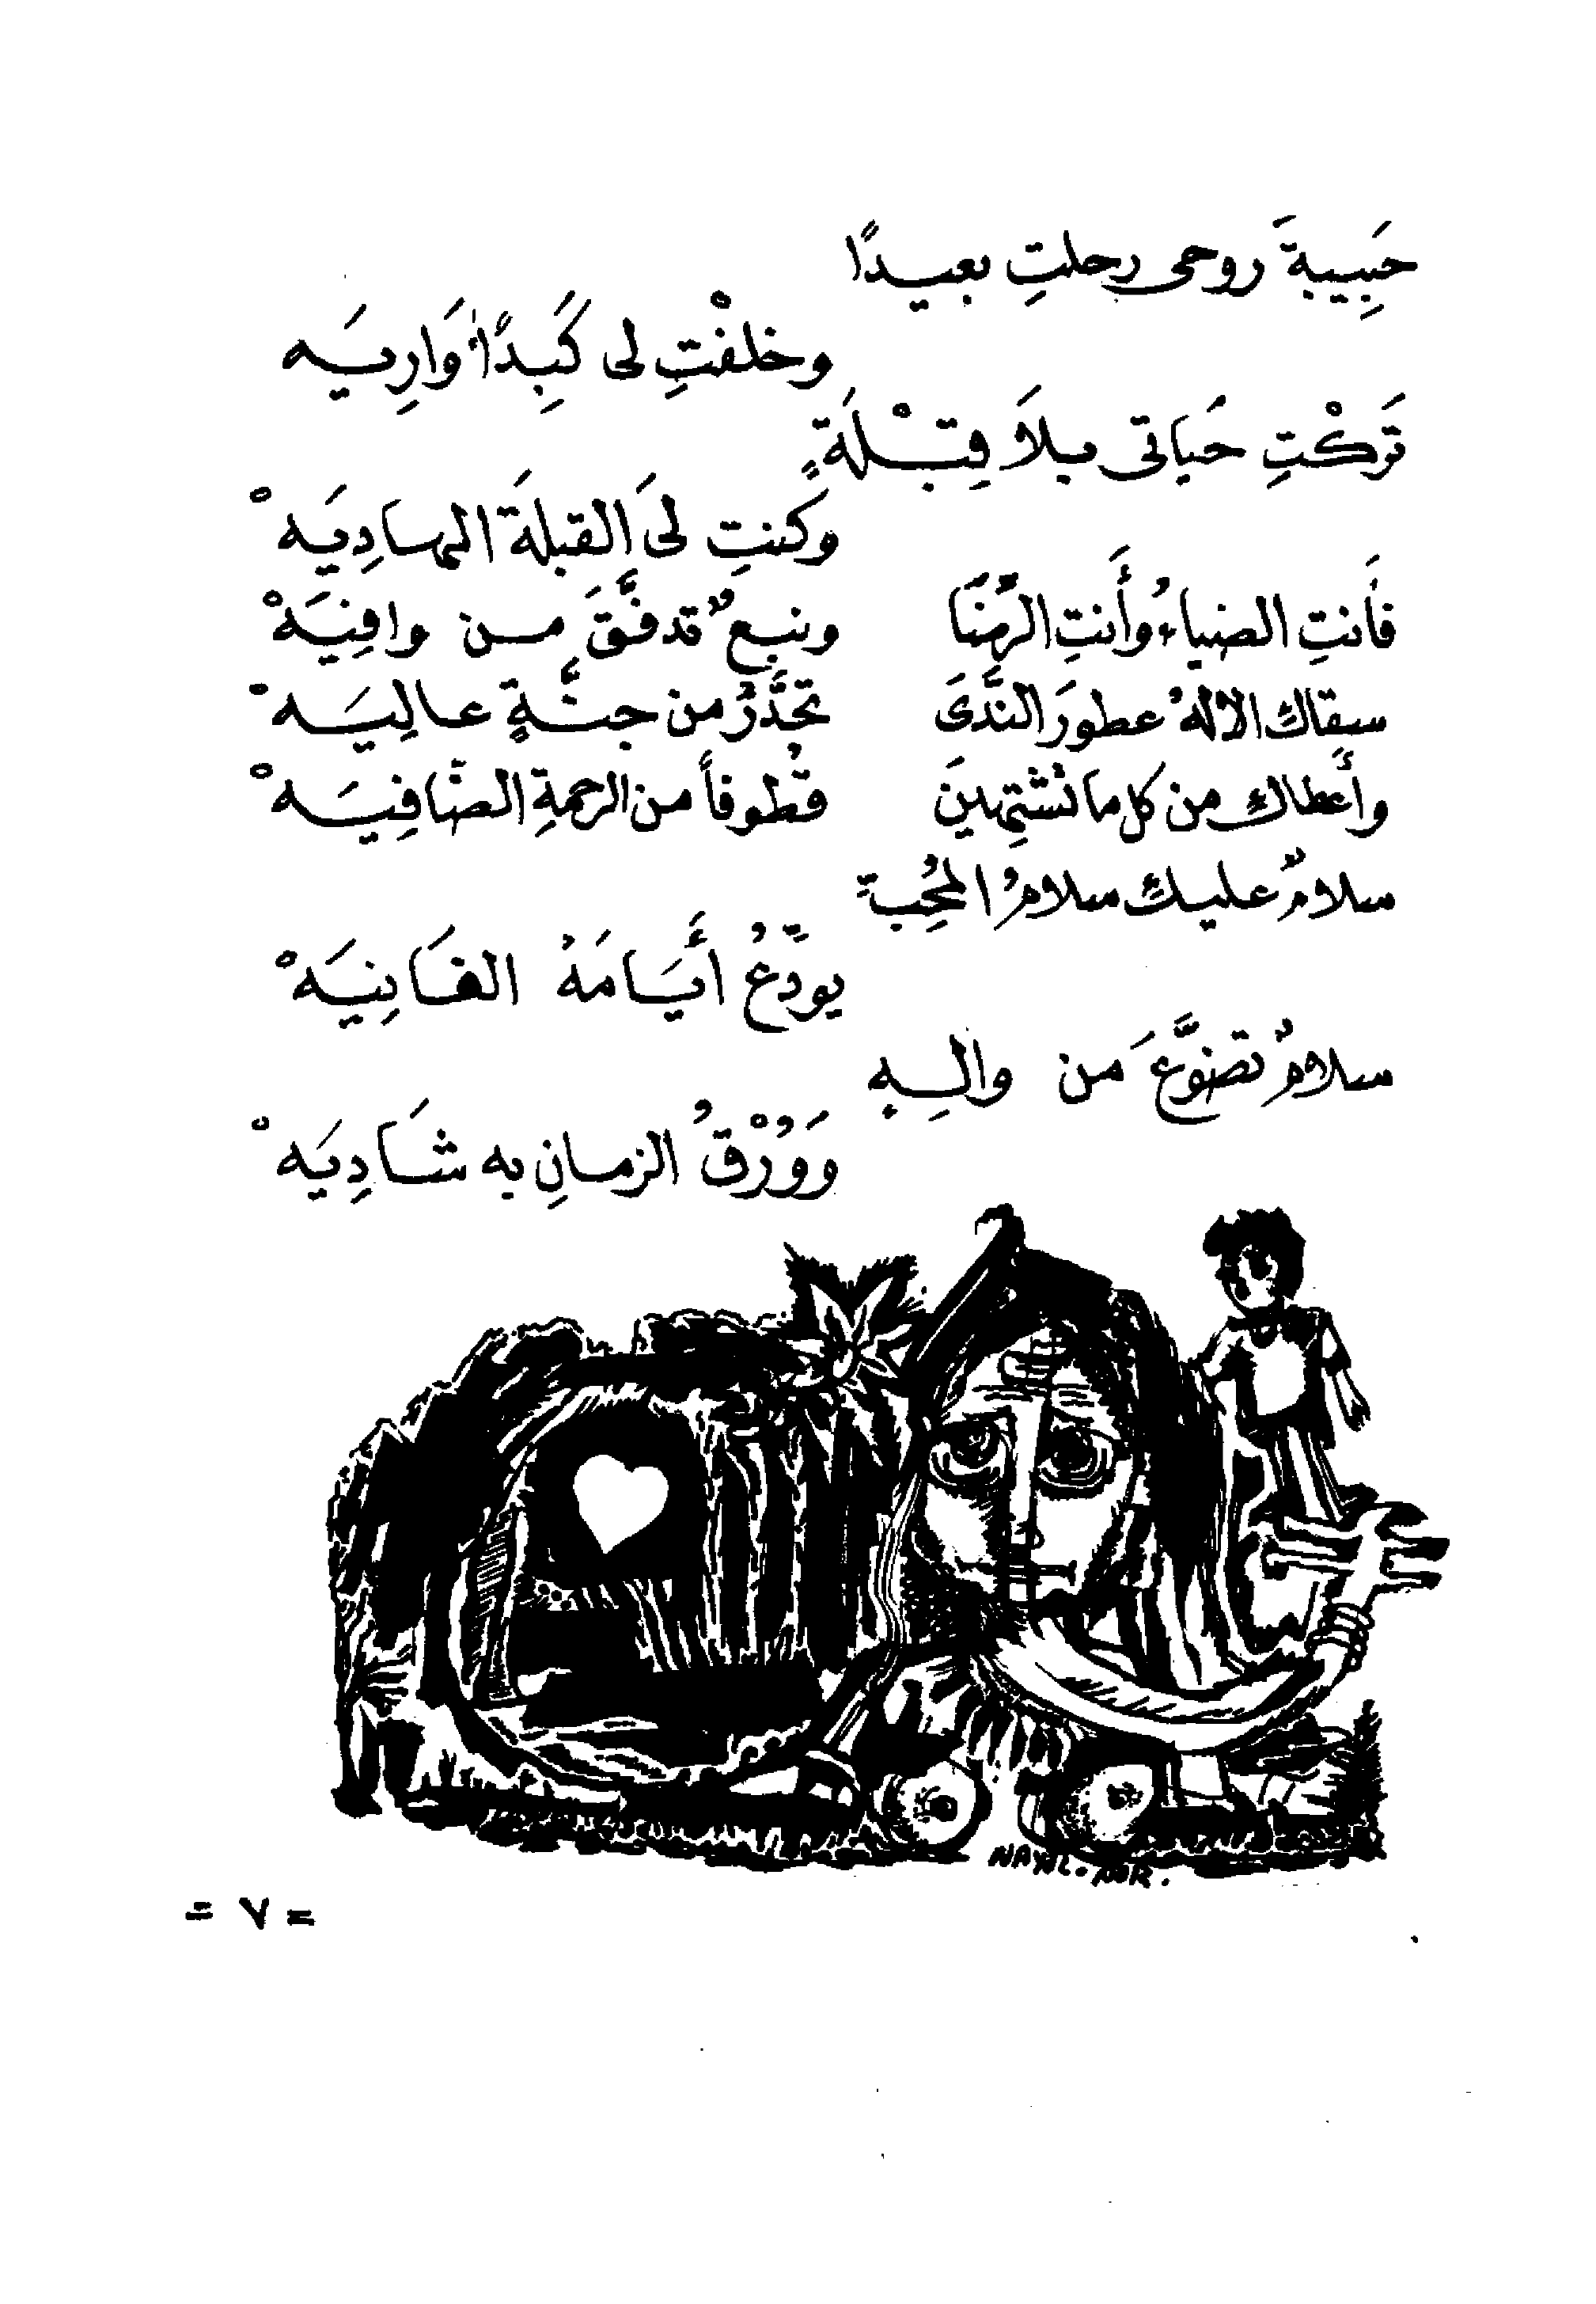 حَبِيبةَ روحى رحلتِ بعيدًا
وخلفْتِ لى كَبِدًا وَارِيَه
تَركْتِ حَياتى بلاَ قِبْلَةٍ
وكنتِ لىَ القبلةَ الهادِيَهْ
فأَنتِ الضياءُ وأَنتِ الرِّضَا ونبعٌ تدفَّقَ من وافِيَهْ
سقاكِ الإلهُ عطورَ النَّدَى تحَدَّرُ من جنَّةٍ عالِيَهْ
وأَعطاكِ من كل ما تشْتهِينَ قُطوفاً من الرحمةِ الصَّافِيَهْ
سلامٌ عليكِ سلامُ المُحِبِّ
يودِّعُ أَيَامَهُ الفَانِيَهْ
سلامٌ تضوَّعَ من والِهٍ
وَوُرْقُ الزمانِ به شَادِيَهْ
NAYL. NOR.
= ٧ =